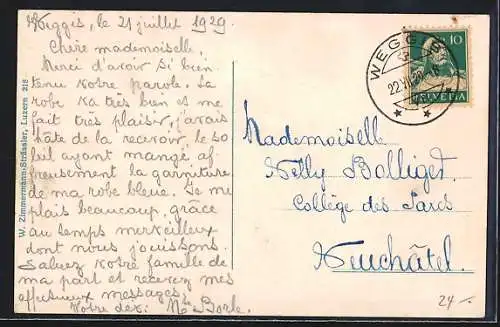 Weggis, le 21 juillet 1929.
Chère mademoiselle.
Merci d'avoir si bien
tenu votre parole. La
robe va très bien et me
fait très plaisir, j'avais
hâte de la recevoir, le so
leil ayant mangé af
freusement la garniture
de ma robe bleue. Je me
plais beaucoup, grâce
au temps merveilleux
dont nous jouissons.
Saluez votre famille de
ma part et recevez mes
affectueux messages.
Votre dév: Borle.
W. Zimmermann-Strässler, Luzern 218
WEGGIS
22.VII.29
10
HELVETIA
Mademoiselle
Nelly Bolliger
Collège des Parcs
Neuchâtel.
24 -